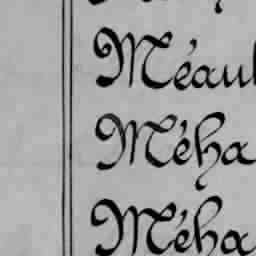 Méaul
Méha
Méha